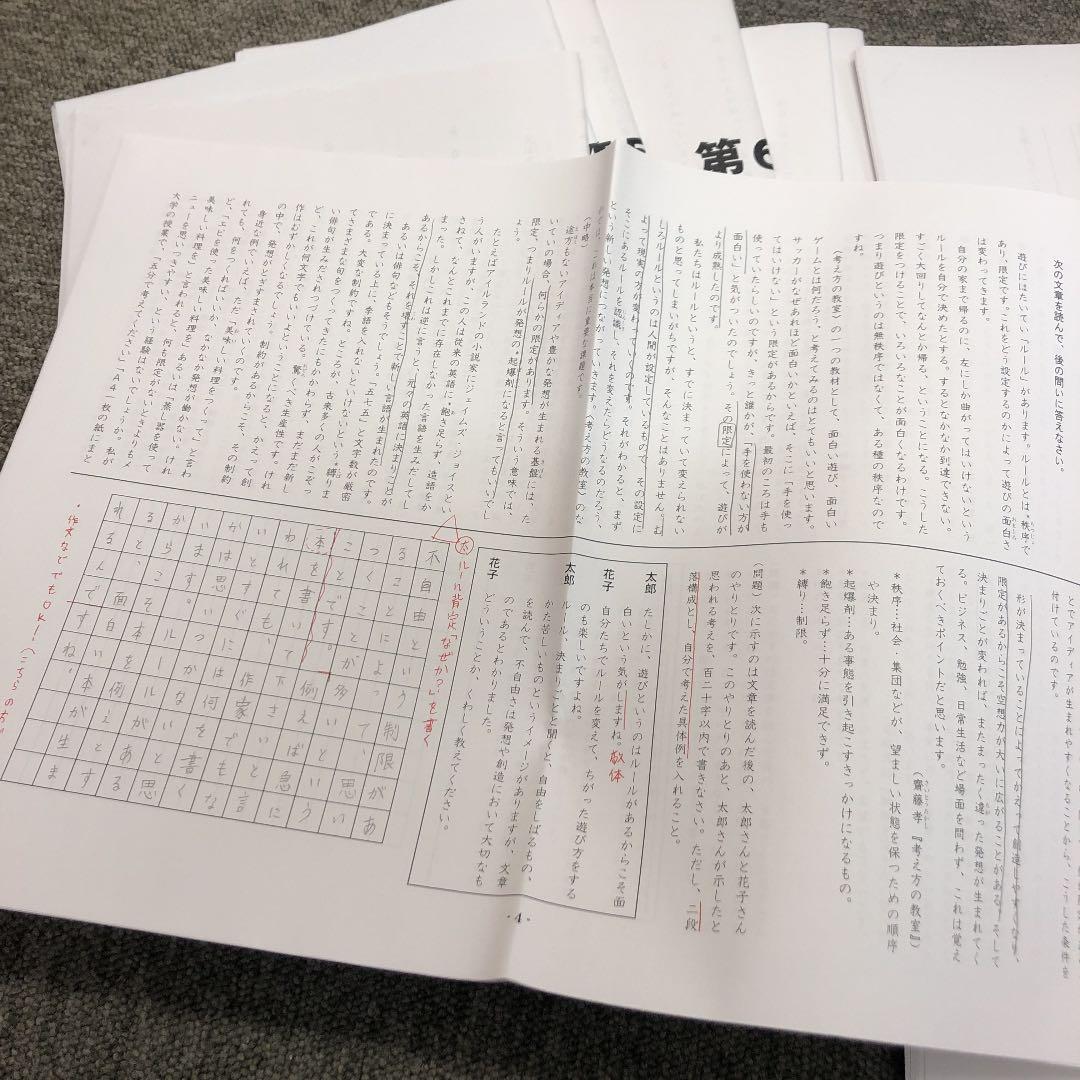 第6
次の文章を読んで、後の問いに答えなさい。
遊びにはたいてい「ルール」があります。ルールとは*秩序で
あり、限定です。これをどう設定するのかによって遊びの面白さ
は変わってきます。
自分の家まで帰るのに、左にしか曲がってはいけないという
ルールを自分で決めたとする。するとなかなか到達できない。
すごく大回りしてなんとか帰る、ということになる。こうした
限定をつけることで、いろいろなことが面白くなるわけです。
つまり遊びというのは無秩序ではなくて、ある種の秩序なので
すね。
〈考え方の教室〉の一つの教材として、面白い遊び、面白い
ゲームとは何だろう、と考えてみるのはとてもいいと思います。
サッカーがなぜあれほど面白いかといえば、そこに「手を使っ
てはいけない」という限定があるからです。最初のころは手も
使っていたらしいのですが、きっと誰かが、「手を使わない方が
面白い」と気がついたのでしょう。その限定によって、遊びが
より成熟したのです。
私たちはルールというと、すでに決まっていて変えられない
ものと思ってしまいがちですが、そんなことはありません。む
しろルールというのは人間が設定しているもので、その設定に
よって現実の方が変わっていくのです。それがわかると、まず
そこにあるルールを認識し、それを変えたらどうなるのだろう、
という新しい発想につながっていきます。〈考え方の教室〉のな
(中略)
途方もないアイディアや豊かな発想が生まれる基盤には、た
いていの場合、何らかの限定があります。そういう意味では、
限定、つまりルールが発想の*起爆剤になると言ってもいいでし
ょう。
たとえばアイルランドの小説家にジェイムズ・ジョイスとい
う人がいますが、この人は従来の英語に*飽き足らず、造語をか
さねて、なんとこれまでに存在しなかった言語を生みだしてし
まった。しかしこれは逆に言うと、元々の英語に決まりごとが
あるからこそ、それを壊すことで新しい言語が生まれたのです。
あるいは俳句などもそうですね。「五七五」と文字数が厳密
に決まっている上に、季語を入れないといけないという*縛りま
である。大変な制約ですね。ところが、古来多くの人がこぞっ
てさまざまな句をつくってきたにもかかわらず、まだまだ新し
い俳句が生みだされつづけている。驚くべき生産性です。けれ
ど、これが何文字でもいいよということになると、かえって創
作はむずかしくなるでしょう。制約があるからこそ、その制約
の中で、発想がとぎすまされていくのです。
身近な例でいえば、ただ「美味しい料理をつくって」と言わ
れても、何をつくればいいか、なかなか発想が働かない。けれ
ど、「エビを使った美味しい料理を」あるいは「蒸し器を使って
美味しい料理を」と言われると、何も限定がないときよりもメ
ニューを思いつきやすい、という経験はないでしょうか。私が
大学の授業で、「五分で考えてください」「A4一枚の紙にまと
とでアイディアが生まれやすくなることから、こうした条件を
付けているのです。
形が決まっていることによってかえって創造しやすくなり、
限定があるからこそ空想力が大いに広がることがある。そして
決まりごとが変われば、またまったく違った発想が生まれてく
る。ビジネス、勉強、日常生活など場面を問わず、これは覚え
ておくべきポイントだと思います。
(齋藤孝『考え方の教室』)
*秩序…社会・集団などが、望ましい状態を保つための順序
や決まり。
*起爆剤…ある事態を引き起こすきっかけになるもの。
*飽き足らず…十分に満足できず。
*縛り…制限。
(問題) 次に示すのは文章を読んだ後の、太郎さんと花子さん
のやりとりです。このやりとりのあと、太郎さんが示したと
思われる考えを、百二十字以内で書きなさい。ただし、二段
落構成とし、自分で考えた具体例を入れること。
太郎 たしかに、遊びというのはルールがあるからこそ面
白いという気がしますね。
敬体
花子 自分たちでルールを変えて、ちがった遊び方をする
のも楽しいですよね。
太郎 ルール、決まりごとと聞くと、自由をしばるもの、
かた苦しいものというイメージがありますが、文章
を読んで、不自由さは発想や創造において大切なも
のであるとわかりました。
花子 どういうことか、くわしく教えてください。
太 ルール肯定「なぜか?」を書く
不自由という制限があ
ることがって、思い
つくことが多いという
ことです。例えば急に
本を書いて下さいと言
われても、作家でもな
いとすぐには何を書く
かは思いつかないと思
います。ルールがある
からこそルールがあ
ると、面白い例えとす
れるんです本が生ま
ね。
・作文などでもOK!
・4・